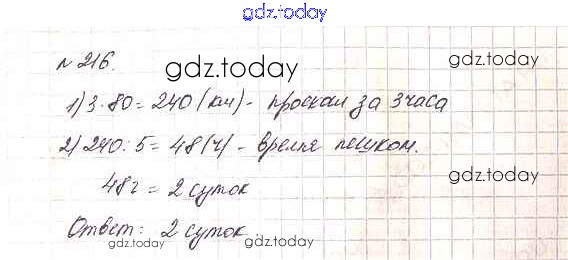 gdz.today
№ 216.
gdz.today
gdz.today
1) 3·80 = 240 (км) - проехал за 3 часа
2) 240 : 5 = 48 (ч) - время пешком.
48 ч = 2 суток
gdz.today
Ответ: 2 суток
gdz.today
gdz.today